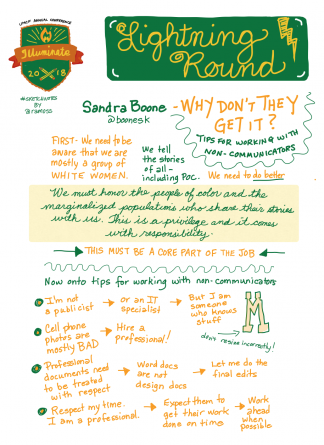 UMCP ANNUAL CONFERENCE
Illuminate
2018
#SKETCHNOTES
BY
Lightning
Round
Sandra Boone
@boonesk
-WHY DON'T THEY
GET IT?
TIPS FOR WORKING WITH
NON-COMMUNICATORS
FIRST- We need to be
aware that we are
mostly a group of
WHITE WOMEN.
We tell
the stories
of all -
including POC.
We need to do better
We must honor the people of color and the
marginalized populations who share their stories
with us. This is a privilege and it comes
with responsibility.
THIS MUST BE A CORE PART OF THE JOB
Now onto tips for working with non-communicators
I'm not
a publicist
or an IT
specialist
But I am
someone
who knows
stuff
M
don't resize incorrectly!
Cell phone
photos are
mostly BAD
Hire a
professional!
Professional
documents need
to be treated
with respect
Word docs
are not
design docs
Let me do the
final edits
Respect my time.
I am a professional.
Expect them to
get their work
done on time
Work
ahead
when
possible